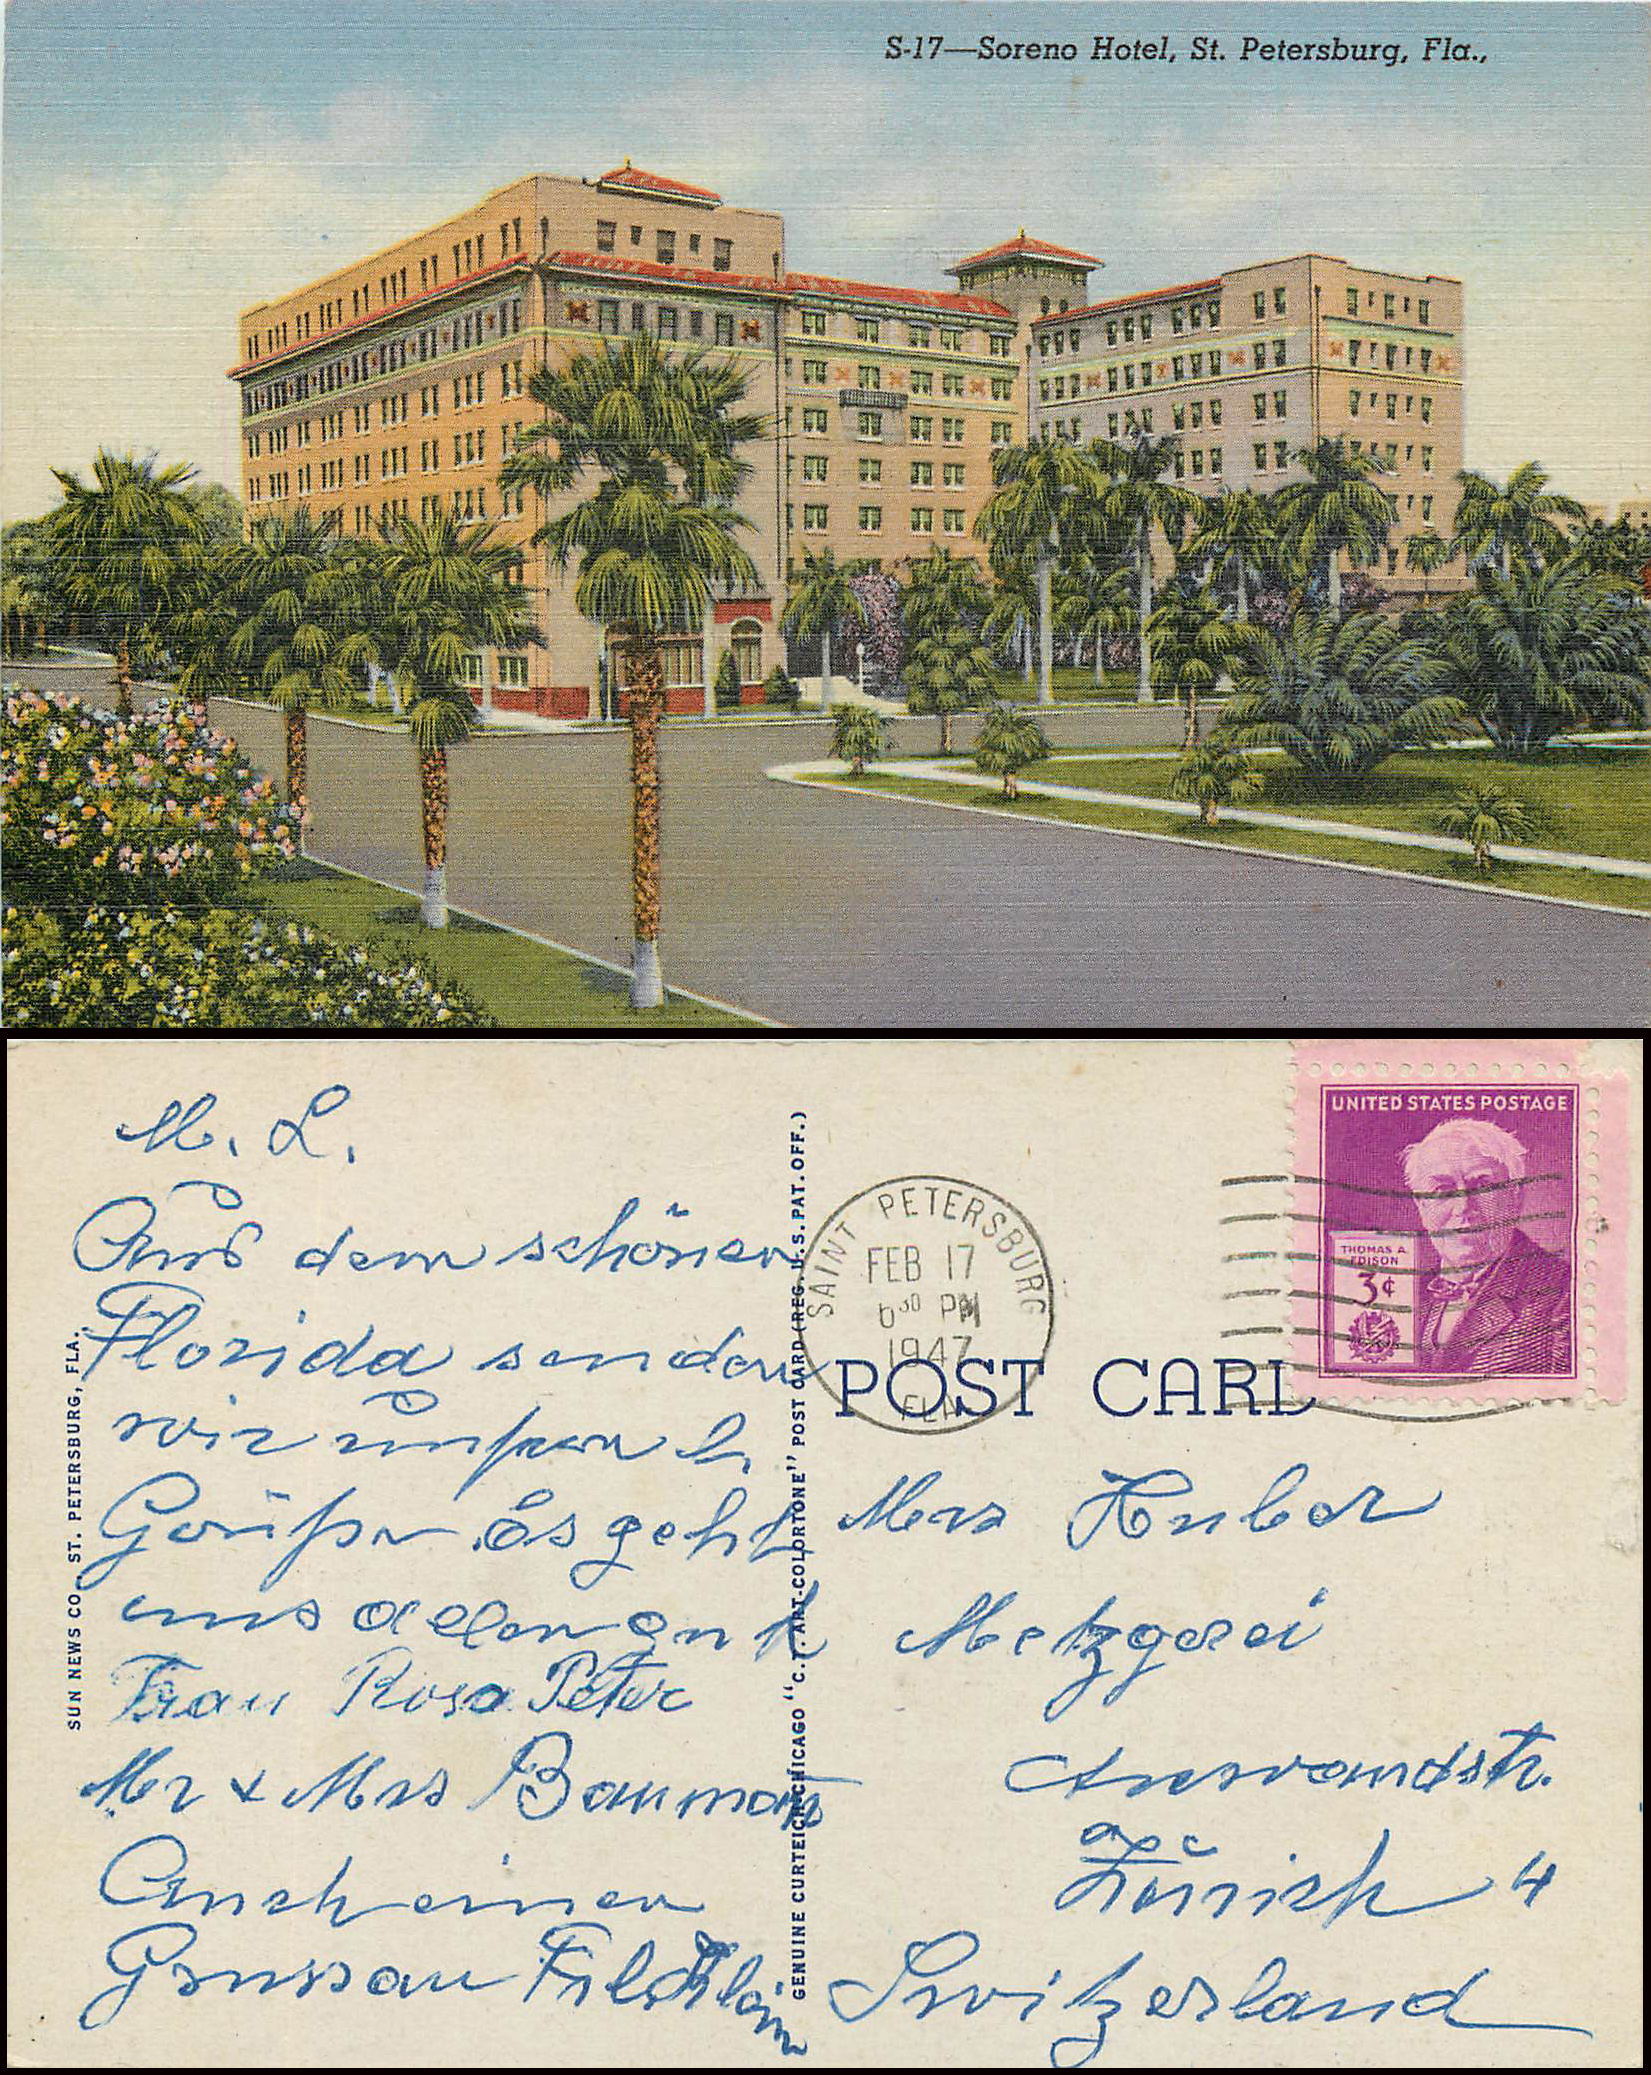 S-17—Soreno Hotel, St. Petersburg, Fla.,
M. L.
Aus dem schönen
Florida senden
wir unsere h.
Grüße. Es geht
uns allen gut
Frau Rosa Peter
Mr & Mrs Baumann
Auch einen
SUN NEWS CO., ST. PETERSBURG, FLA.
GENUINE CURTEICH-CHICAGO "C.T. ART-COLORTONE" POST CARD (REG. U.S. PAT. OFF.)
SAINT PETERSBURG
FEB 17
6 30 PM
1947
FLA
UNITED STATES POSTAGE
THOMAS A.
EDISON
3¢
POST CARD
Mrs Huber
Metzgerei
Anwandstr.
Zürich 4
Switzerland